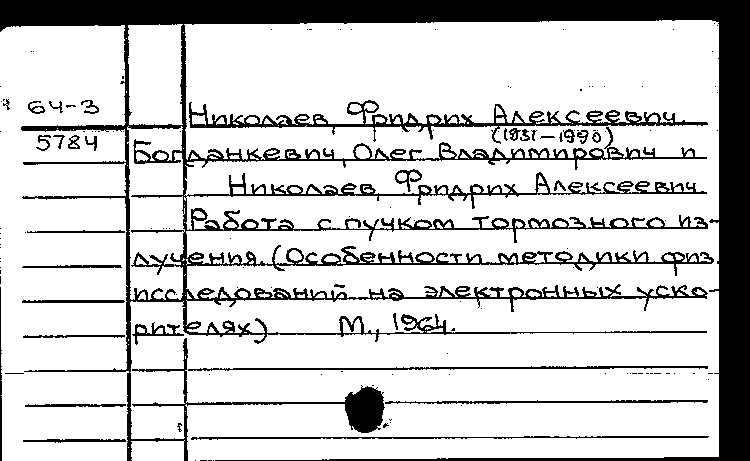 64-3
Николаев, Фридрих Алексеевич.
5784
(1931-1990)
Богданкевич, Олег Владимирович и
Николаев, Фридрих Алексеевич.
Работа с пучком тормозного из-
лучения. (Особенности методики физ.
исследований на электронных уско-
рителях) М., 1964.